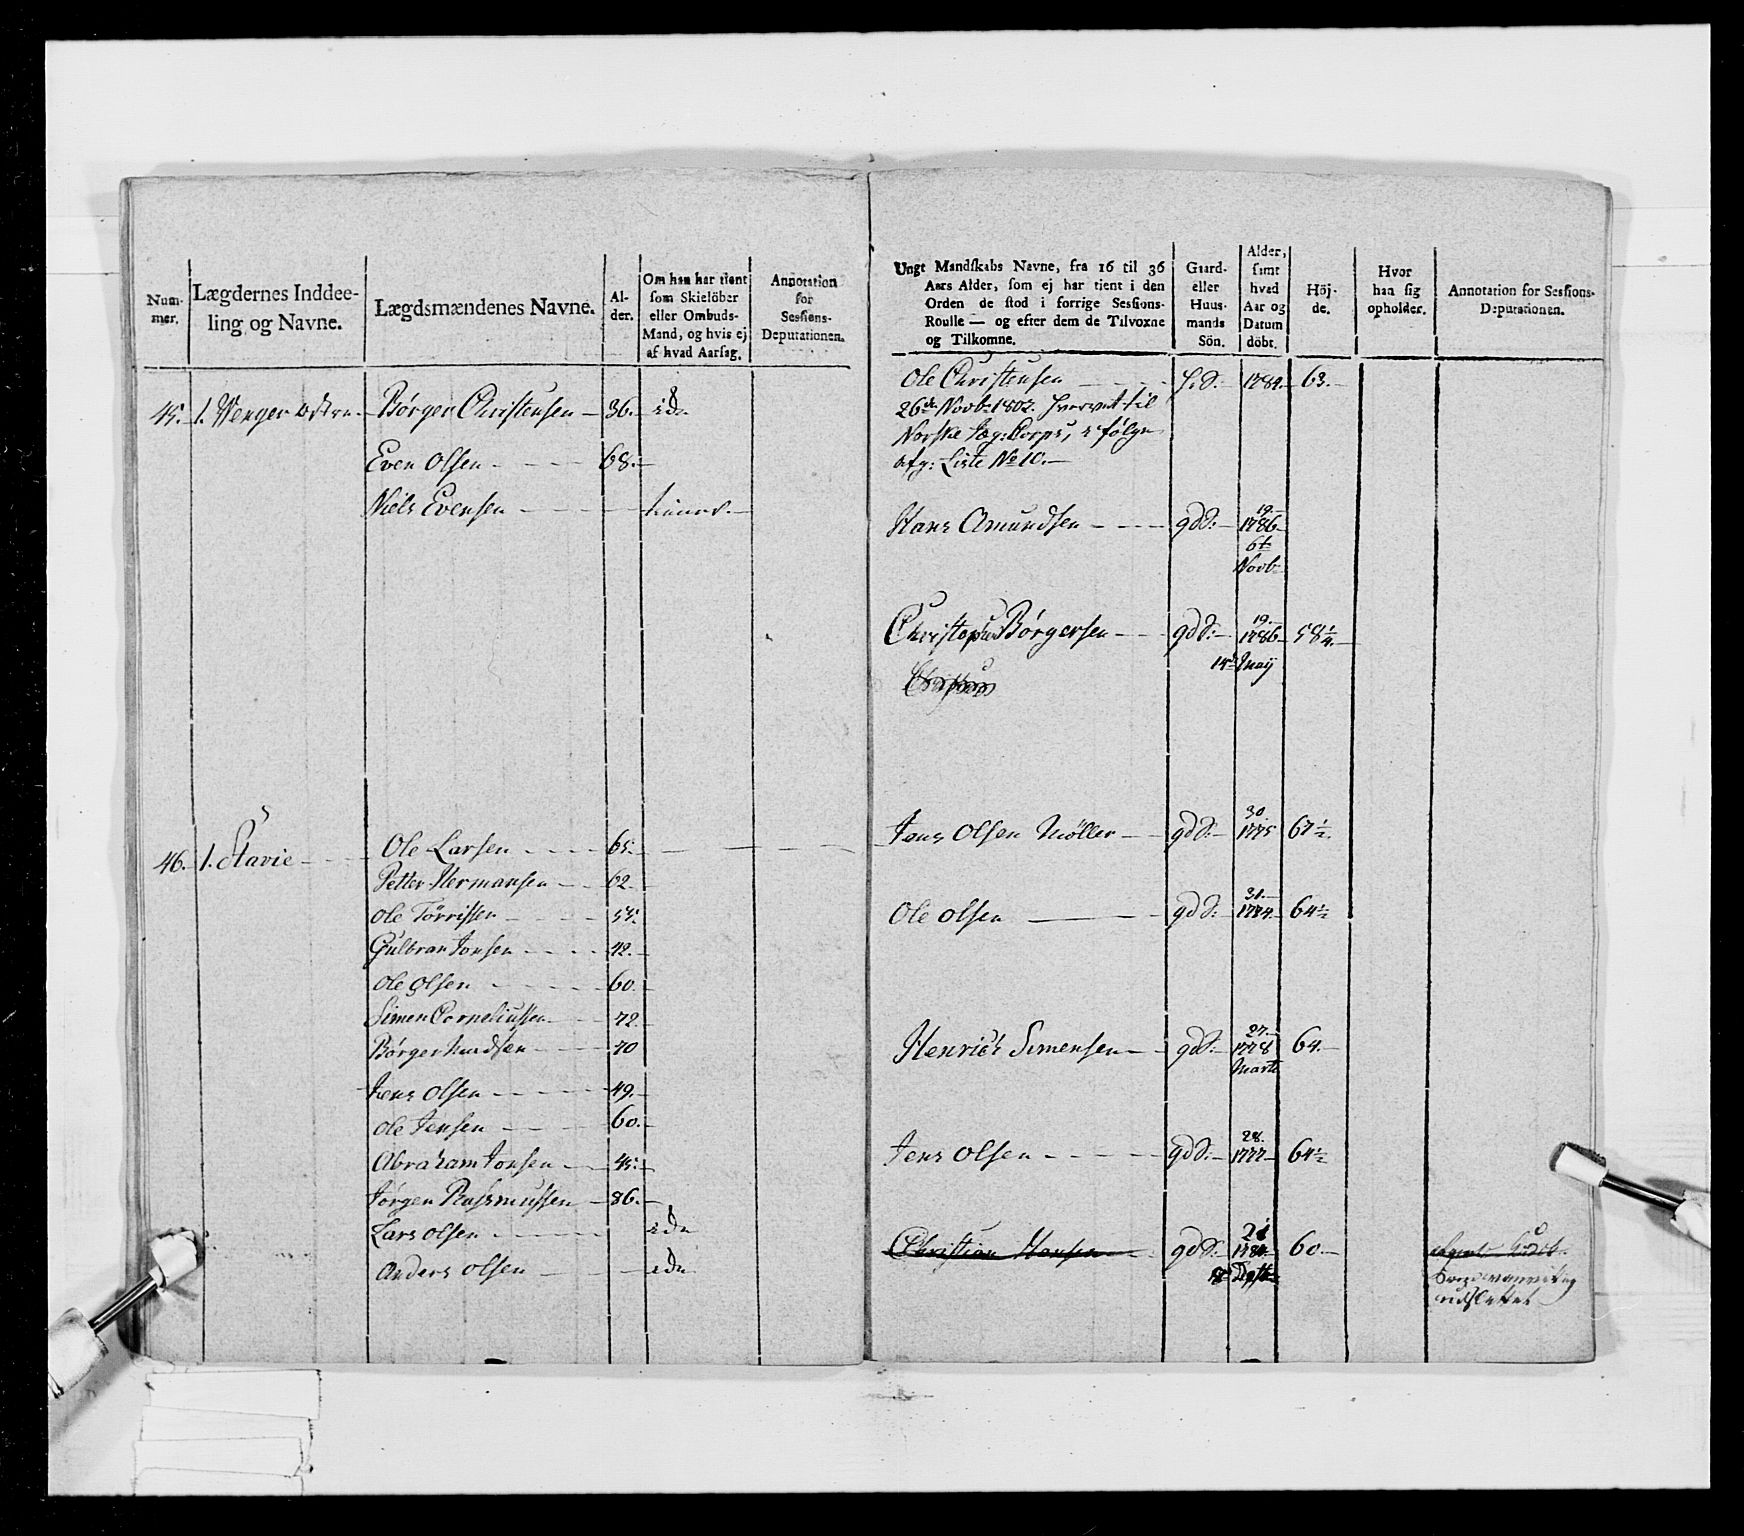 Num-
mer.
Lægdernes Inddee-
ling og Navne.
Lægdsmændenes Navne.
Al-
der.
Om han har tient
som Skielöber
eller Ombuds-
Mand, og hvis ej
af hvad Aarsag.
Annotation
for
Sessions-
Deputationen.
45. 1. Wenger østre Børger Christensen 36.
Even Olsen 68.
Niels Evensen
46. 1. Stavie Ole Larsen 65.
Petter Hermansen 62.
Ole Törrissen 55.
Gulbran Jonsen 42.
Ole Olsen 60.
Simen Corneliussen 72.
Börger Knudsen 70
Jens Olsen 49.
Ole Jensen 60.
Abraham Jonsen 45.
Jörgen Rasmussen 86.
Lars Olsen
Anders Olsen
Ungt Mandskabs Navne, fra 16 til 36
Aars Alder, som ej har tient i den
Orden de stod i forrige Sessions-
Roulle — og efter dem de Tilvoxne
og Tilkomne.
Gaard-
eller
Huus-
mands
Sön.
Alder,
samt
hvad
Aar og
Datum
döbt.
Höj-
de.
Hvor
han sig
opholder.
Annotation for Sessions-
Deputationen.
Ole Christensen 1784. 63.
26de Novbr 1802. hvervet til
Norske Jæg: Corps, e følge
afg: Liste No 10.
Hans Amundsen gd S. 19.
1786
6te
Novb
Christopher Börgersen gd S. 19.
1786 58 1/4.
14de Maij
Jens Olsen Möller gd S. 30.
1775 67 1/2.
Ole Olsen gd S. 31.
1774 64 1/2
Henrich Simensen gd S. 27.
1778 64.
Marti
Jens Olsen gd S. 28.
1777 64 1/2
Christian Hansen gd S. 21
1784 60
18de Septb
udslettet